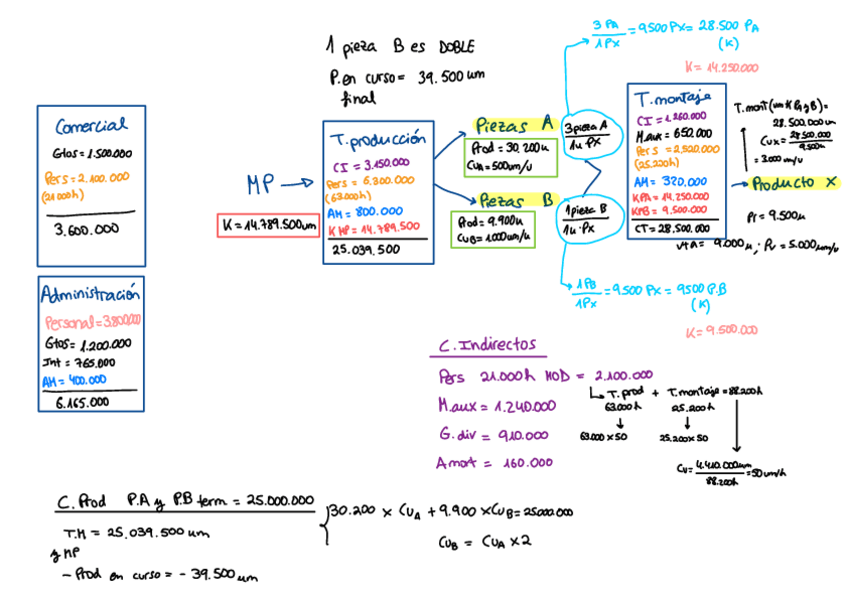 1 pieza B es DOBLE
P. en curso = 39.500 um
final
3 PA
1Px
= 9500 Px = 28.500 PA
(K)
K = 14.250.000
Comercial
Gtos = 1.500.000
Pers = 2.100.000
(21000h)
3.600.000
Administración
Personal = 3.800.000
Gtos = 1.200.000
Int = 765.000
AM = 400.000
6.165.000
MP
K = 14.789.500um
T. producción
CI = 3.150.000
Pers = 6.300.000
(63.000h)
AM = 800.000
K MP = 14.789.500
25.039.500
Piezas A
Prod = 30,200u
CuA = 500um/u
Piezas B
Prod = 9.900u
CuB = 1000um/u
3 pieza A
1u Px
1 pieza B
1u · Px
1PB
1Px
= 9500 Px = 9500 P.B
(K)
K = 9.500.000
T. montaje
CI = 1.260.000
M.aux = 650.000
Pers = 2.520.000
(25.200h)
AM = 320.000
KPA = 14.250.000
KPB = 9.500.000
CT = 28.500.000
T. mont (um K PA y B) =
28.500.000um
Cux = 28.500.000
9.500u
= 3.000 um/u
Producto X
Pr = 9.500u
vta = 9.000u ; Pv = 5.000um/u
C. Indirectos
Pers 21.000h MOD = 2.100.000
M.aux = 1.240.000
G. div = 910.000
Amort = 160.000
T. prod + T. montaje = 88.200h
63.000h 25.200h
63.000 x 50 25.200 x 50
Cu = 4.410.000um
88.200h
= 50 um/h
C. Prod P.A y P.B term = 25.000.000
T.M = 25.039.500 um
y MP
- Prod en curso = - 39.500 um
30.200 x CuA + 9.900 x CuB = 25000.000
CuB = CuA x 2